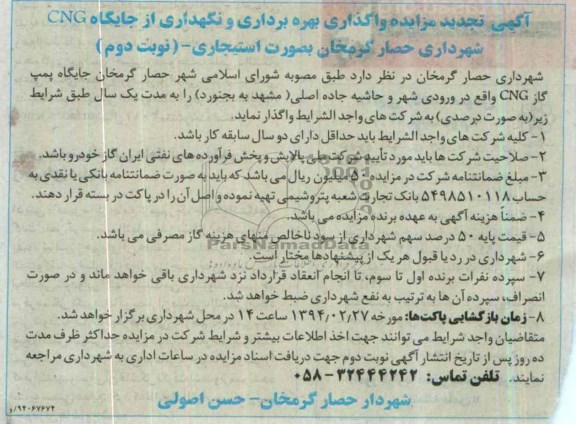 آگهی تجدید مزایده واگذاری بهره برداری و نگهداری از جایگاه CNG
شهرداری حصار گرمخان بصورت استیجاری- (نوبت دوم)
شهرداری حصار گرمخان در نظر دارد طبق مصوبه شورای اسلامی شهر حصار گرمخان جایگاه پمپ
گاز CNG واقع در ورودی شهر و حاشیه جاده اصلی( مشهد به بجنورد) را به مدت یک سال طبق شرایط
زیر(به صورت درصدی) به شرکت های واجد الشرایط واگذار نماید.
۱- کلیه شرکت های واجد الشرایط باید حداقل دارای دو سال سابقه کار باشد.
۲- صلاحیت شرکت ها باید مورد تأیید شرکت ملی پالایش و پخش فرآورده های نفتی ایران گاز خودرو باشد.
۳- مبلغ ضمانتنامه شرکت در مزایده ۵۰ میلیون ریال می باشد که باید به صورت ضمانتنامه بانکی یا نقدی به
حساب ۵۴۹۸۵۱۰۱۱۸ بانک تجارت شعبه پتروشیمی تهیه نموده و اصل آن را در پاکت در بسته قرار دهند.
۴- ضمناً هزینه آگهی به عهده برنده مزایده می باشد.
۵- قیمت پایه ۵۰ درصد سهم شهرداری از سود ناخالص منهای هزینه گاز مصرفی می باشد.
ParsNamadData
۶- شهرداری در رد یا قبول هر یک از پیشنهادها مختار است.
۷- سپرده نفرات برنده اول تا سوم، تا انجام انعقاد قرارداد نزد شهرداری باقی خواهد ماند و در صورت
انصراف، سپرده آن ها به ترتیب به نفع شهرداری ضبط خواهد شد.
۸- زمان بازگشایی پاکت‌ها: مورخه ۱۳۹۴/۰۲/۲۷ ساعت ۱۴ در محل شهرداری برگزار خواهد شد.
متقاضیان واجد شرایط می توانند جهت اخذ اطلاعات بیشتر و شرایط شرکت در مزایده حداکثر ظرف مدت
ده روز پس از تاریخ انتشار آگهی نوبت دوم جهت دریافت اسناد مزایده در ساعات اداری به شهرداری مراجعه
نمایند. تلفن تماس: ۳۲۴۴۴۲۴۲-۰۵۸
شهردار حصار گرمخان- حسن اصولی
۹۴۰۶۷۶۷۲/و